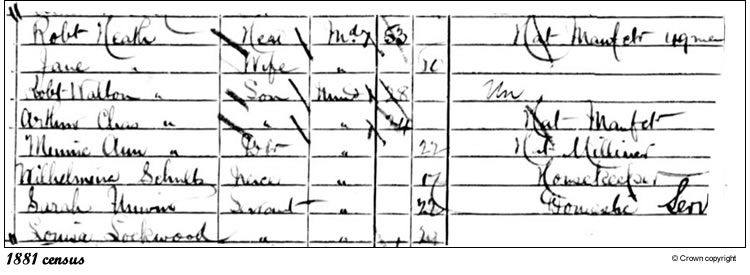 Robt Heath Head Mar 53 Hat Manfctr
Jane " Wife "
Robt Walton " Son Unmd 28 Un
Arthur Chas " " " 24 Hat Manfctr
Minnie Ann " Dtr " 22 Hat Milliner
Wilhelmena Schultz Niece " 17 Housekeeper
Sarah Unwin Servant " 22 Domestic Serv
Louisa Lockwood " "
1881 census
© Crown copyright